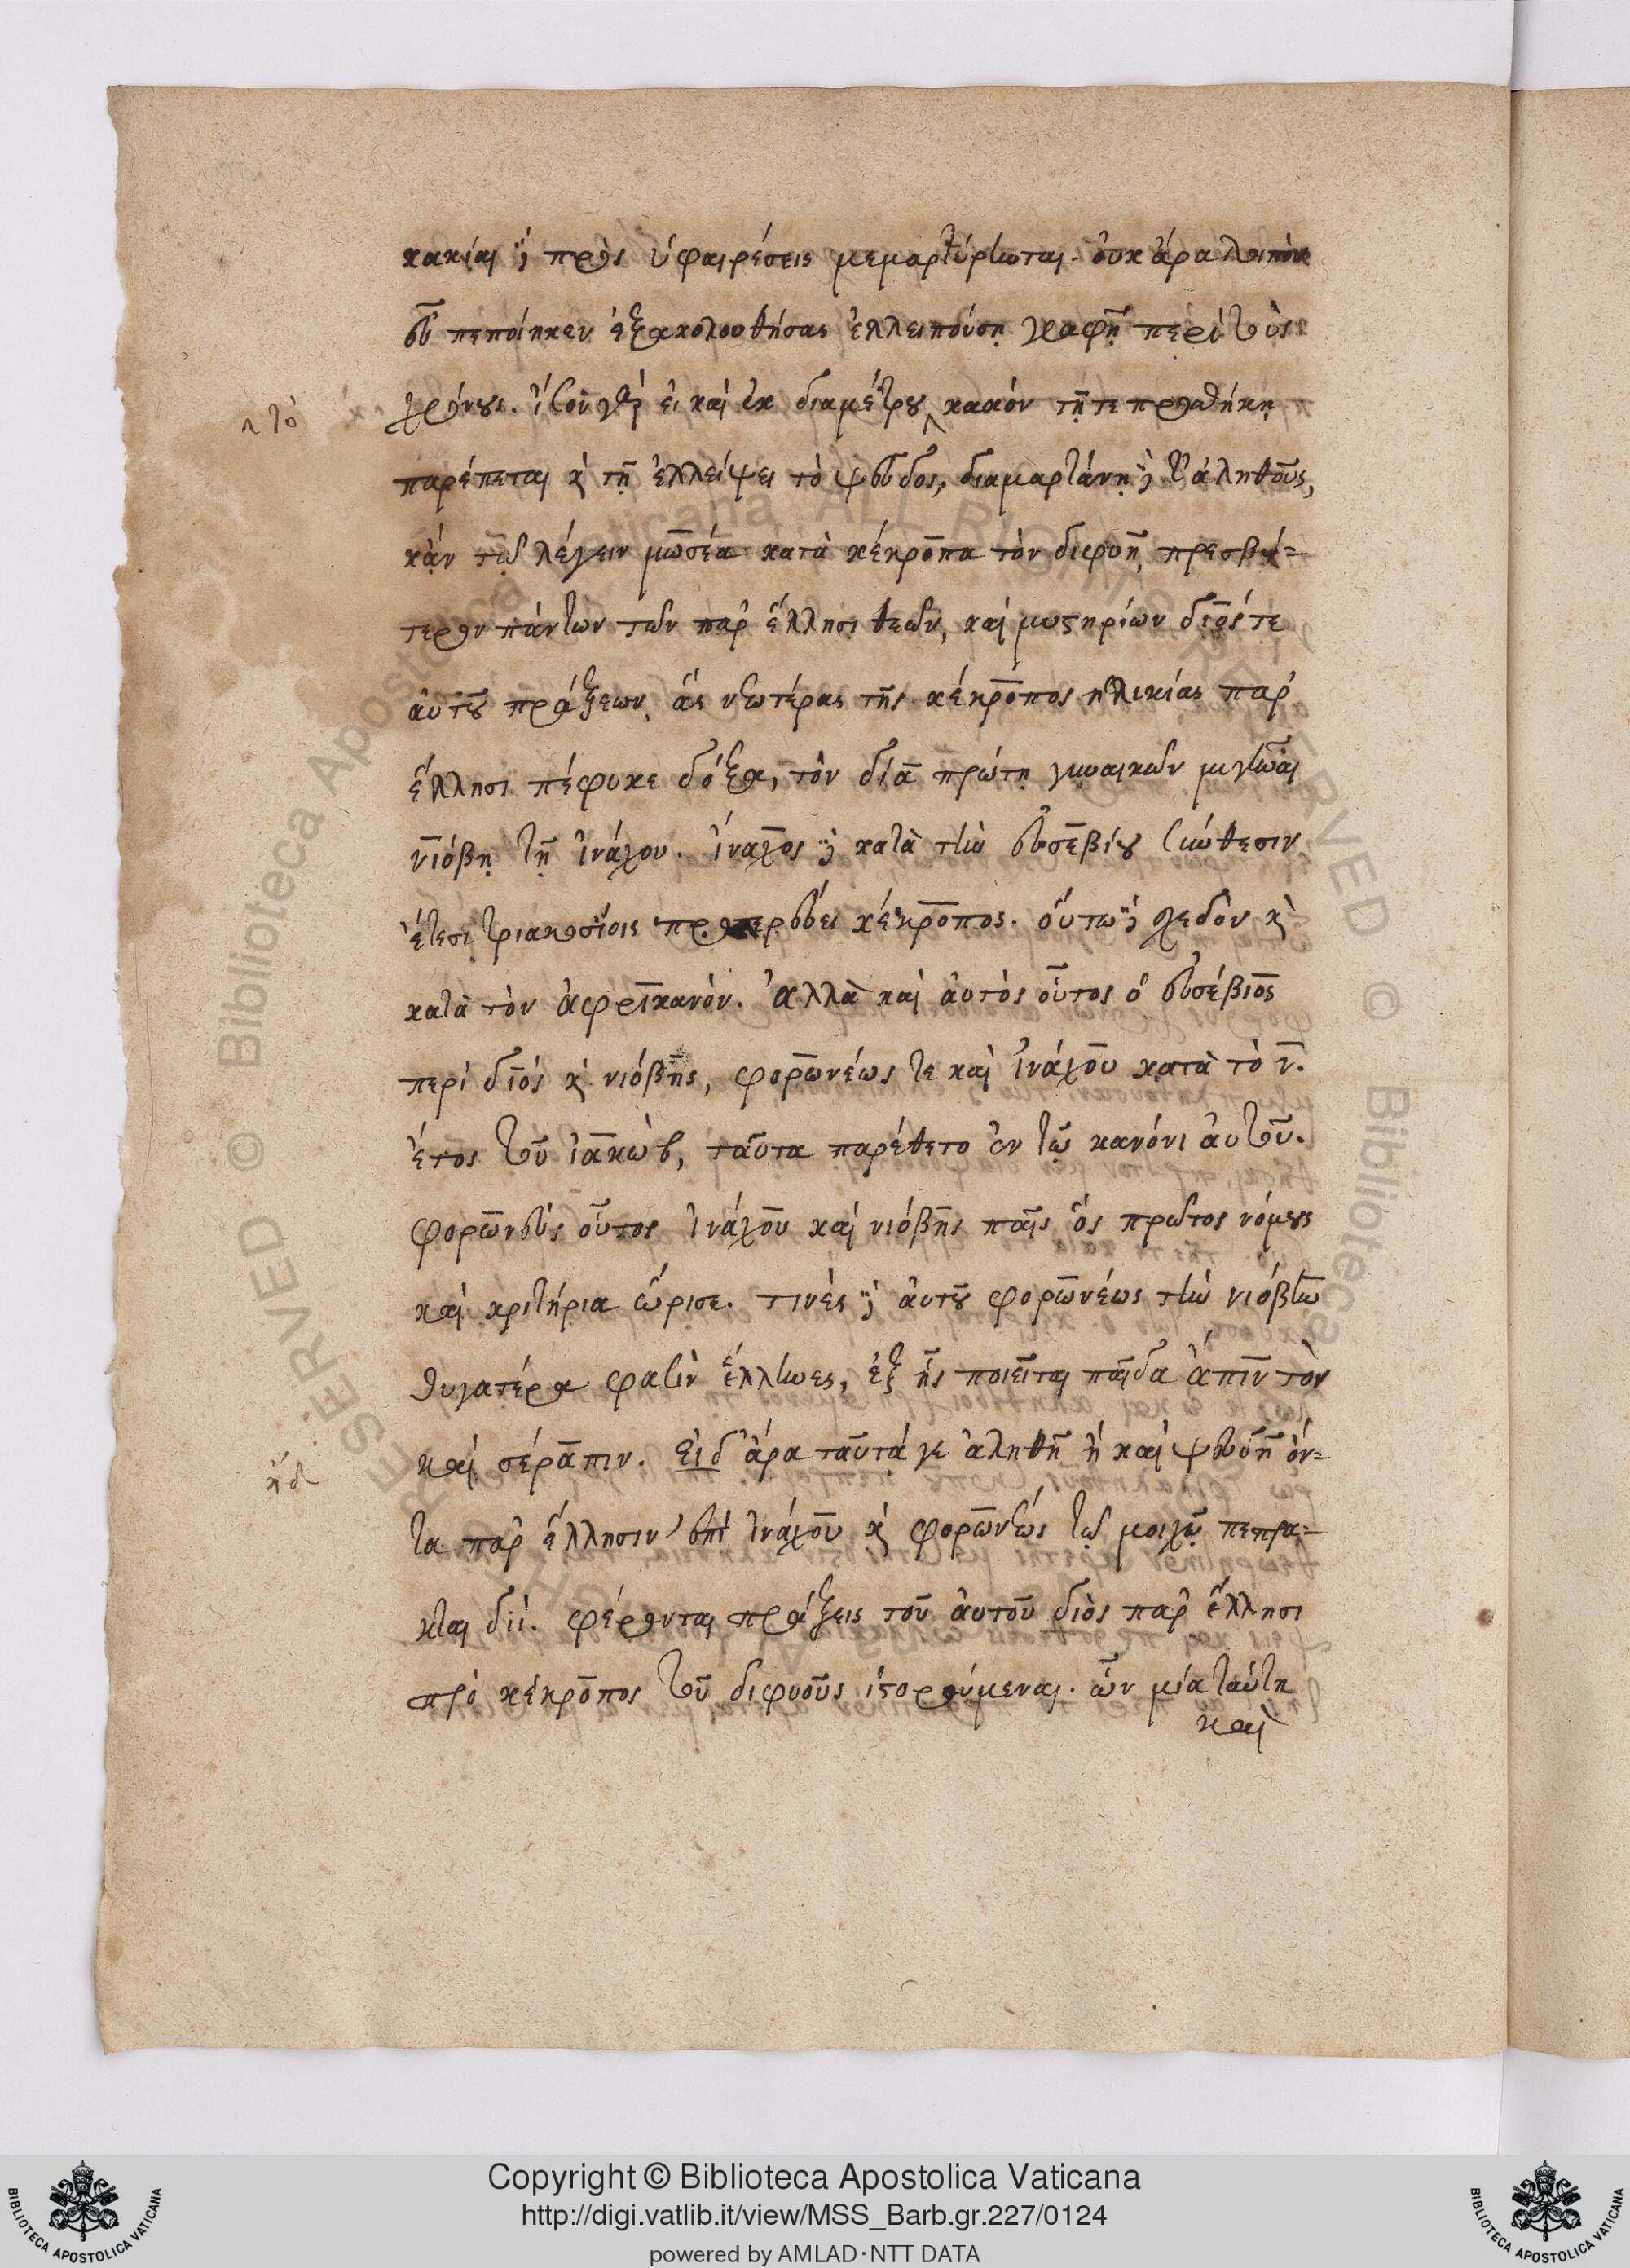 κακίαι δὲ πρὸς ὑφαιρέσεις μεμαρτύρηνται. οὐκ ἄρα λοιπὸν
εὖ πεποίηκεν ἐξακολουθήσας ἐλλειπούσῃ γραφῇ περὶ τοὺς
χρόνους. ἴσον γὰρ εἰ καὶ ἐκ διαμέτρου κακὸν τῇ τε προσθήκῃ
^ τὸ
παρέπεται καὶ τῇ ἐλλείψει τὸ ψεῦδος, διαμαρτάνῃ δὲ τἀληθοῦς,
κἂν τῷ λέγειν μωσέα κατὰ κέκροπα τὸν διφυῆ, πρεσβύ=
τερον πάντων τῶν παρ' ἕλλησι θεῶν, καὶ μυστηρίων διός τε
αὐτοῦ πράξεων, ἃς νεωτέρας τῆς κέκροπος ἡλικίας παρ'
ἕλλησι πέφυκε δόξα, τὸν δία πρώτῃ γυναικῶν μιγῆναι
νιόβῃ τῇ ἰνάχου. ἴναχος δὲ κατὰ τὴν εὐσεβίου σύνθεσιν
ἔτεσι τριακοσίοις προτερεύει κέκροπος. οὕτω δὲ σχεδὸν καὶ
κατὰ τὸν ἀφρικανόν. ἀλλὰ καὶ αὐτὸς οὗτος ὁ εὐσέβιος
περὶ διός καὶ νιόβης, φορωνέως τε καὶ ἰνάχου κατὰ τὸ ν.
ἔτος τοῦ ἰακὼβ, ταῦτα παρέθετο ἐν τῷ κανόνι αὐτοῦ.
φορωνεὺς οὗτος ἰνάχου καὶ νιόβης παῖς ὃς πρῶτος νόμους
καὶ κριτήρια ὥρισε. τινὲς δὲ αὐτοῦ φορωνέως τὴν νιόβην
θυγατέρα φασὶν ἕλληνες, ἐξ ἧς ποιεῖται παῖδα ἄπιν τὸν
καὶ σέραπιν. εἰ δ' ἄρα ταῦτά γε ἀληθῆ ἢ καὶ ψευδῆ ὄν=
τα παρ' ἕλλησιν ἐπὶ ἰνάχου καὶ φορωνέως τῷ μοιχῷ πεπρα=
κται διί. φέρονται πράξεις τοῦ αὐτοῦ διὸς παρ' ἕλλησι
πρὸ κέκροπος τοῦ διφυοῦς ἱστορούμεναι. ὧν μία ταύτη
καὶ
Copyright © Biblioteca Apostolica Vaticana
http://digi.vatlib.it/view/MSS_Barb.gr.227/0124
powered by AMLAD·NTT DATA
BIBLIOTECA APOSTOLICA VATICANA
BIBLIOTECA APOSTOLICA VATICANA